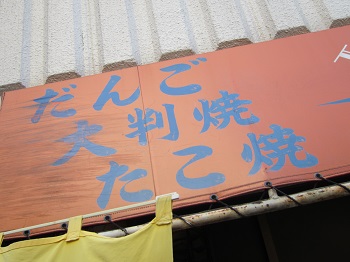 だんご
大判焼
たこ焼